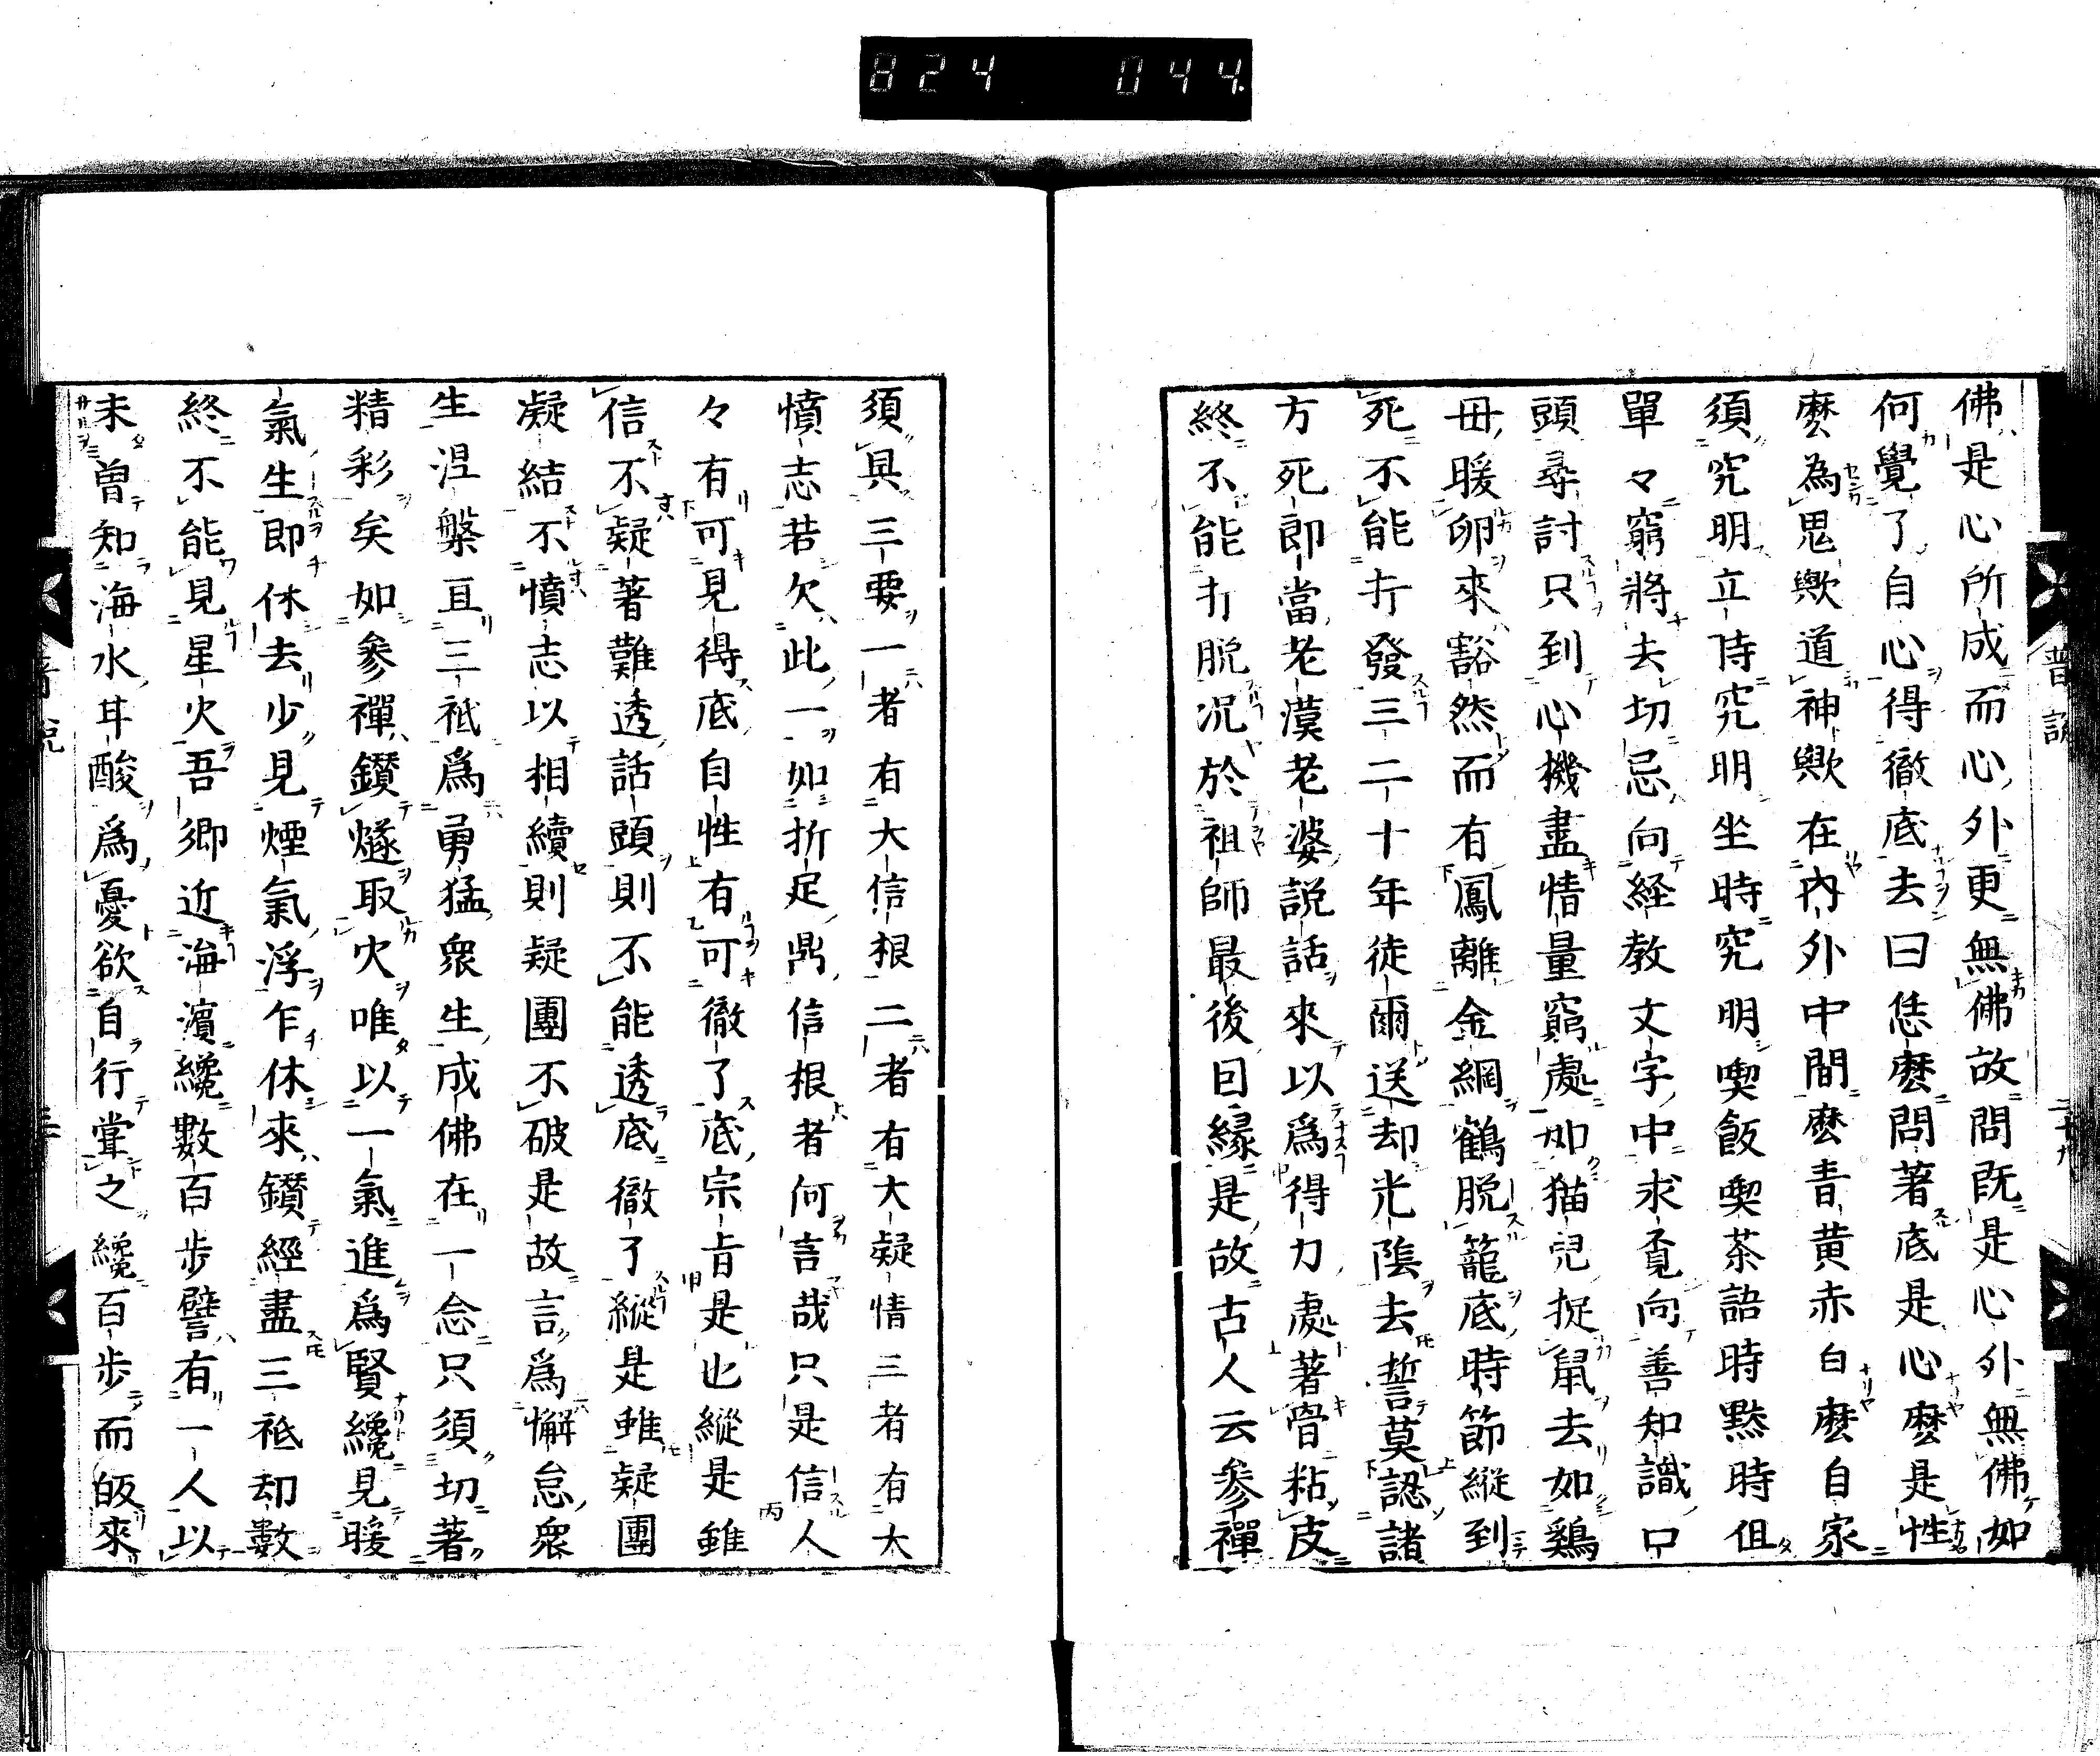 824 044
佛是心所成而心外更無佛故問既是心外無佛如
何覺了自心得徹底去曰恁麼問著底是心麼是性
麼為思歟道神歟在內外中間麼青黃赤白麼自家
須究明立時究明坐時究明喫飯喫茶語時黙時但
單々窮將去切忌向経教文字中求覓向善知識口
頭尋討只到心機盡情量窮處如猫兒捉鼠去如鷄
母暖卵來豁然而有鳳離金網鶴脱籠底時節縱到
死不能打發三二十年徒爾送却光陰去誓莫認諸
方死郎當老漢老婆説話來以爲得力處著骨粘皮
終不能打脱況於祖師最後因縁是故古人云參禪
普説
二十九
須具三要一者有大信根二者有大疑情三者有大
憤志若欠此一如折足鼎信根者何言哉只是信人
々有可見得底自性有可徹了底宗旨是也縱是雖
信不疑著難透話頭則不能透底徹了縱是雖疑團
凝結不憤志以相續則疑團不破是故言爲懈怠衆
生涅槃亘三祇爲勇猛衆生成佛在一念只須切著
精彩矣如參禪鑚燧取火唯以一氣進爲賢纔見暖
氣生即休去少見煙氣浮乍休來鑚經盡三祇却數
終不能見星火吾郷近海濵纔數百歩譬有一人以
未曽知海水其酸爲憂欲自行甞之纔百歩而皈來